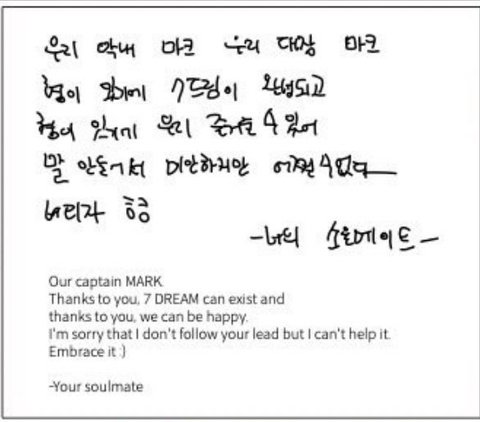 우리 막내 마크 우리 대장 마크
형이 있기에 7드림이 완성되고
형이 있기에 우리 즐거울 수 있어
말 안들어서 미안하지만 어쩔 수 없다
버티자 흐콩
-너의 소울메이트-
Our captain MARK.
Thanks to you, 7 DREAM can exist and
thanks to you, we can be happy.
I'm sorry that I don't follow your lead but I can't help it.
Embrace it :)
-Your soulmate